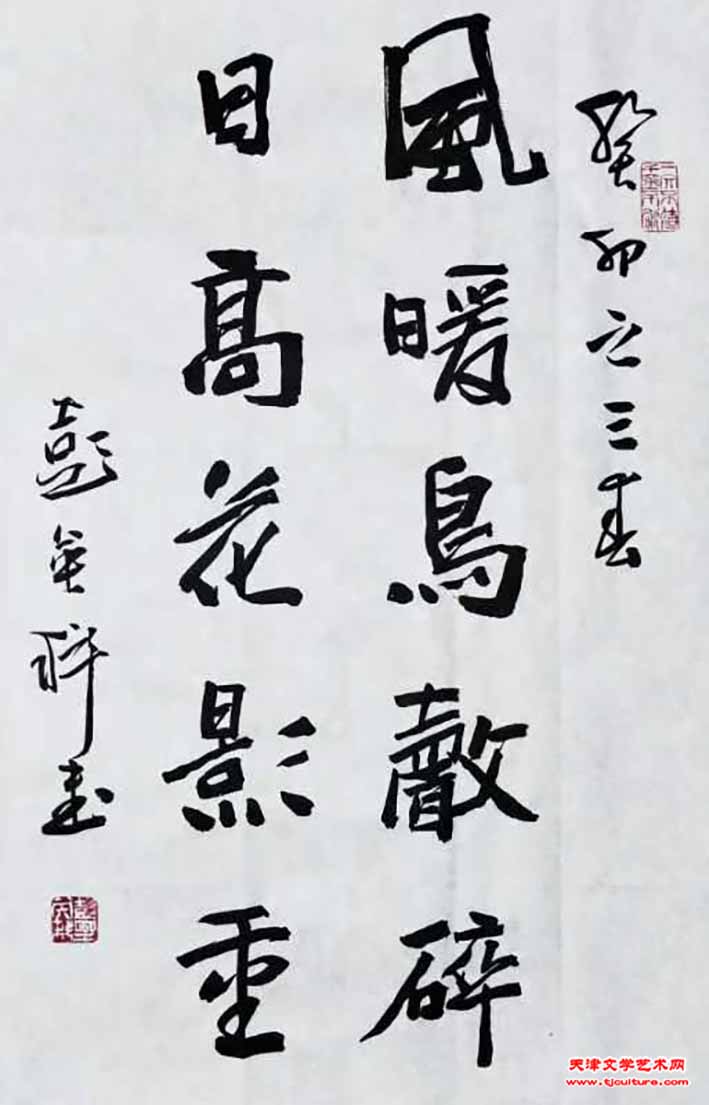 癸卯之三春
風暖鳥聲碎
日高花影重
彭英科書
天津文学艺术网
www.tjculture.com